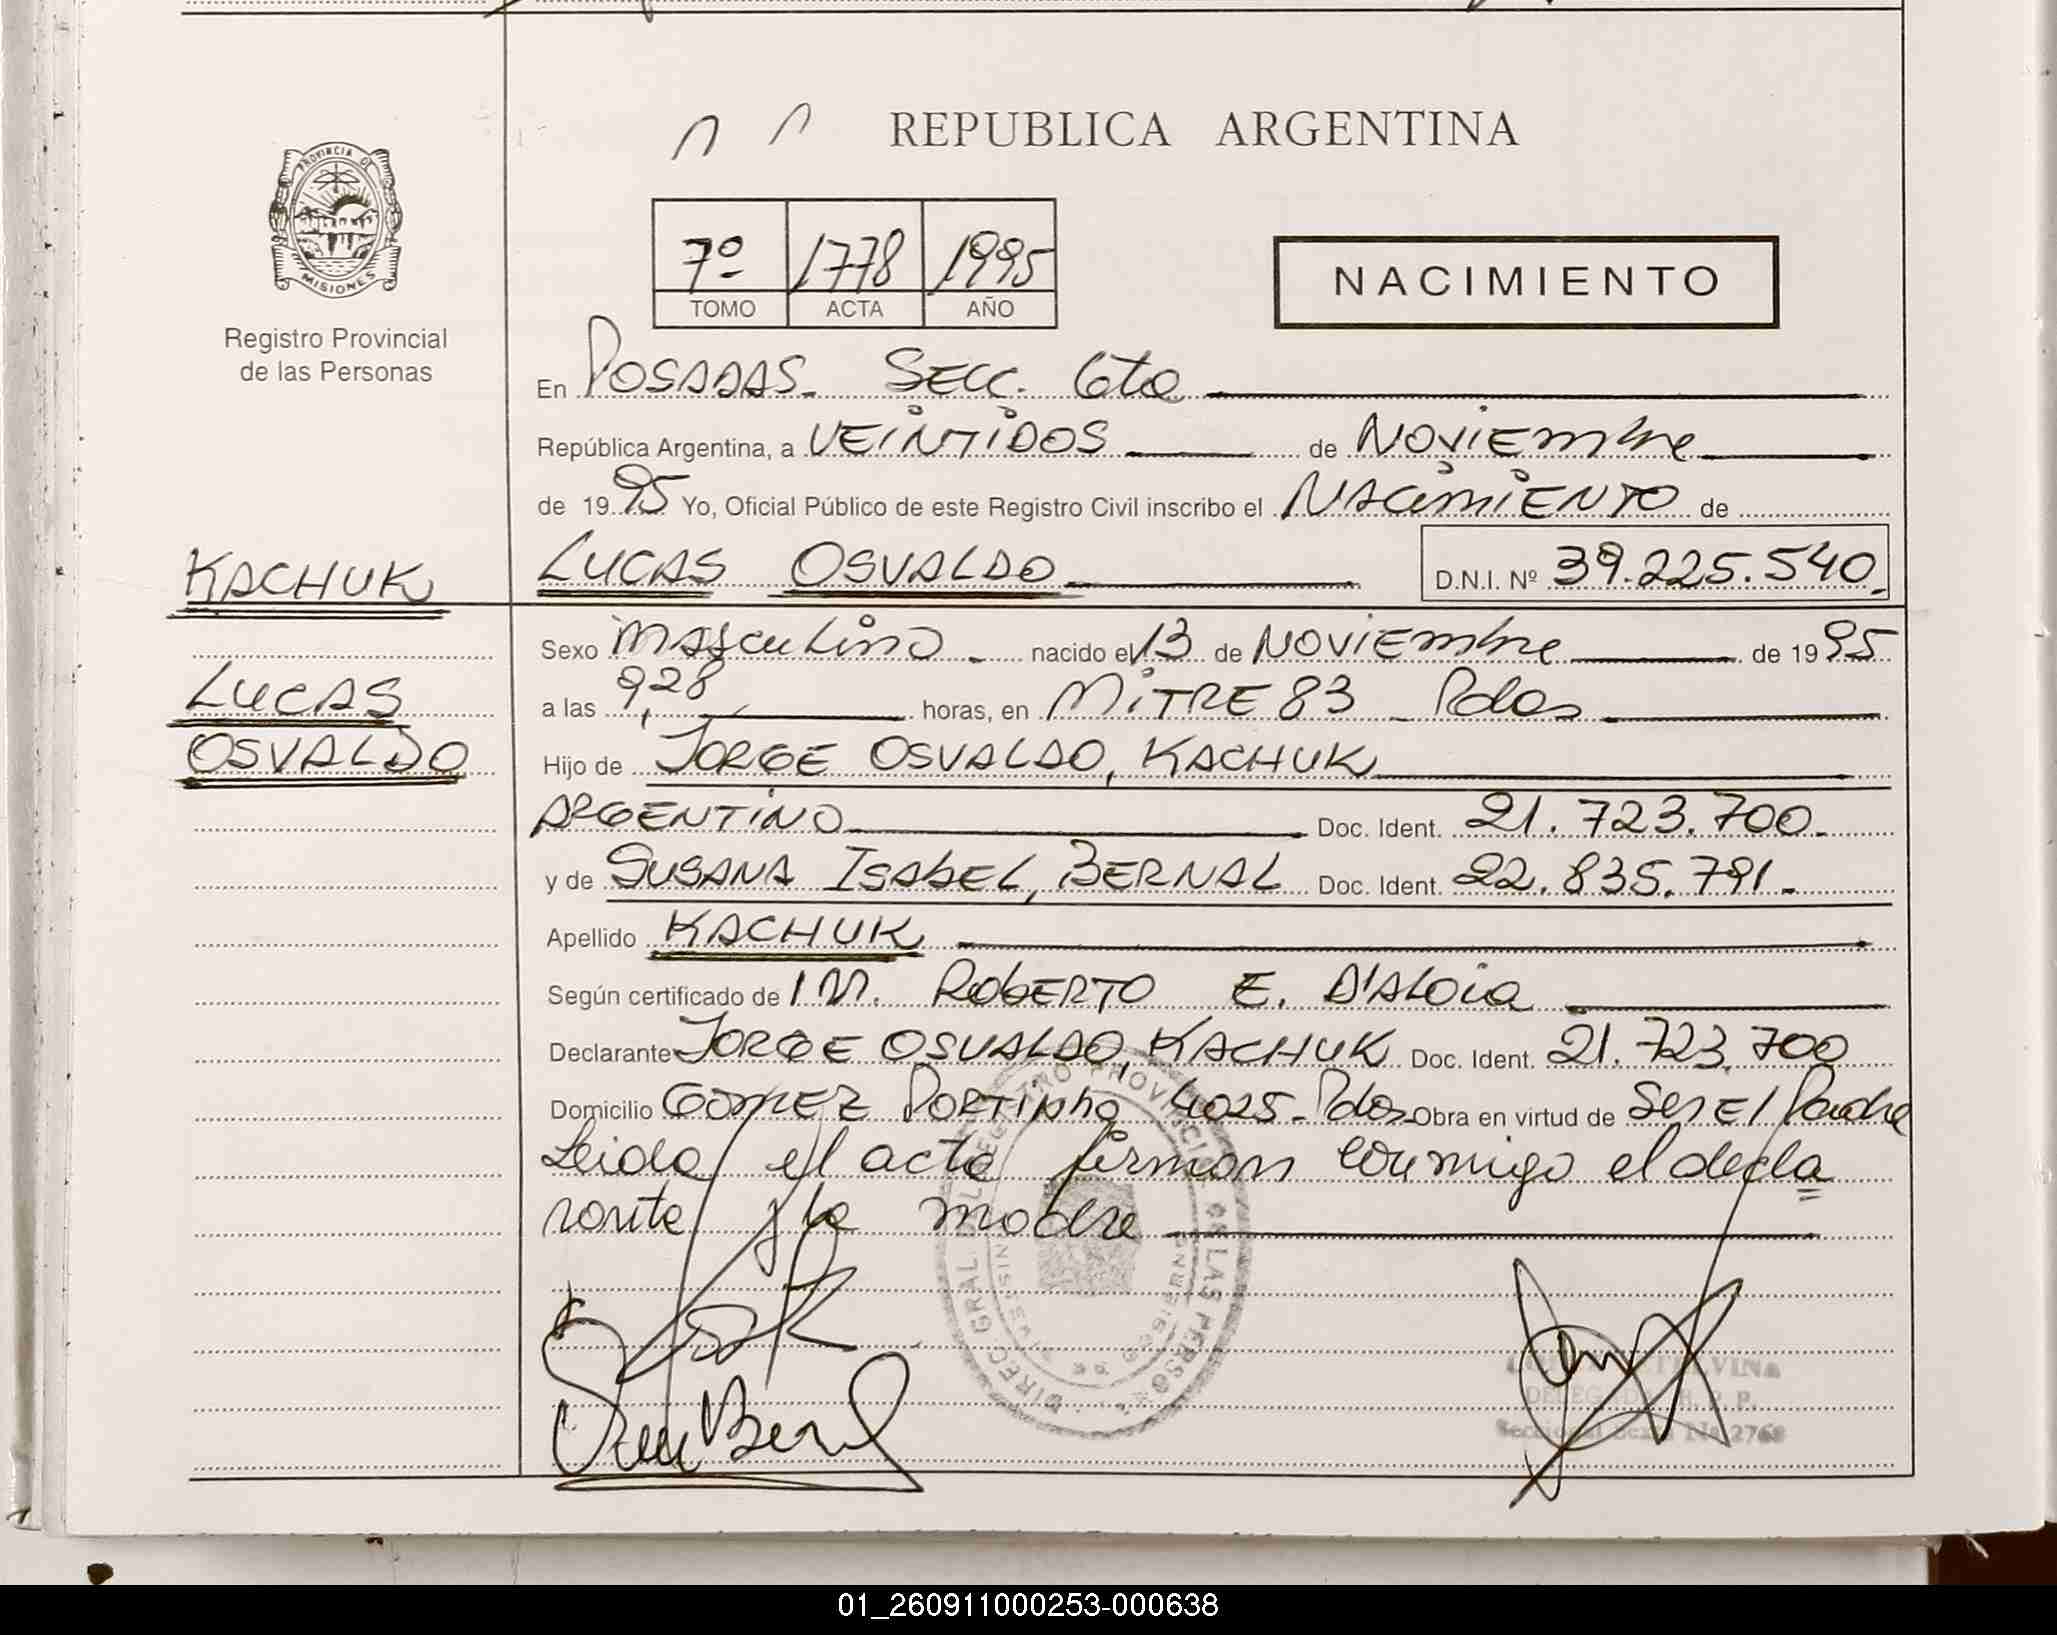 REPUBLICA ARGENTINA
PROVINCIA DE
MISIONES
Registro Provincial
de las Personas
7º 1778 1995
TOMO ACTA AÑO
NACIMIENTO
En POSADAS. SECC. 6ta
República Argentina, a VEINTIDOS de NOVIEmbre
de 1995 Yo, Oficial Público de este Registro Civil inscribo el NACimiENTO de
KACHUK
LUCAS OSVALDO D.N.I. Nº 39.225.540.
Sexo mASculino nacido el 13 de NOVIEmbre de 1995
LUCAS
a las 9,28 horas, en MiTRE 83 Pdas
OSVALDO
Hijo de JORGE OSVALDO, KACHUK
ARGENTINO Doc. Ident. 21.723.700.
y de SUSANA ISABEL, BERNAL Doc. Ident. 22.835.791.
Apellido KACHUK
Según certificado de ROBERTO E. D'ALOia
Declarante JORGE OSVALDO, KACHUK Doc. Ident. 21.723.700
Domicilio GOMEZ PORTINho 4025-Pdas Obra en virtud de Ser El Padre
Leida el acta firman conmigo el decla
rante y la madre
DIREC. GRAL. DEL REGISTRO PROVINCIAL DE LAS PERSONAS
Seccional Sexta 2768
01_260911000253-000638